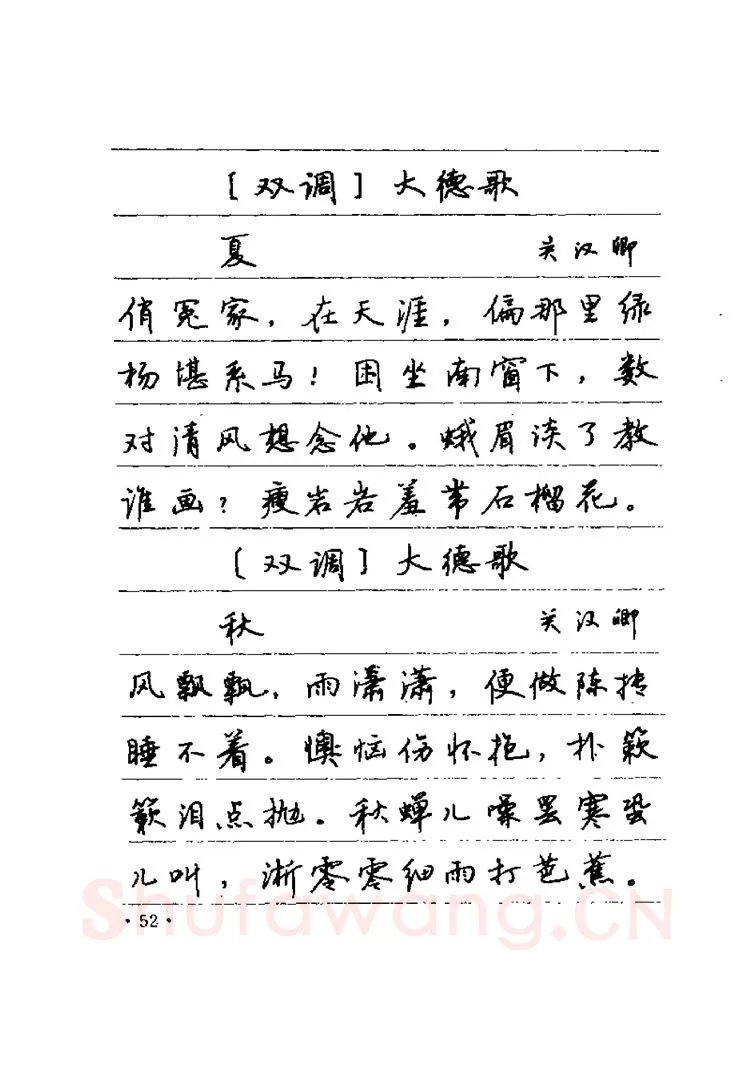 ［双调］大德歌
夏 关汉卿
俏冤家，在天涯，偏那里绿
杨堪系马！困坐南窗下，数
对清风想念他。蛾眉淡了教
谁画？瘦岩岩羞带石榴花。
［双调］大德歌
秋 关汉卿
风飘飘，雨潇潇，便做陈抟
睡不着。懊恼伤怀抱，扑簌
簌泪点抛。秋蝉儿噪罢寒蛩
儿叫，淅零零细雨打芭蕉。
Shufawang.CN
·52·